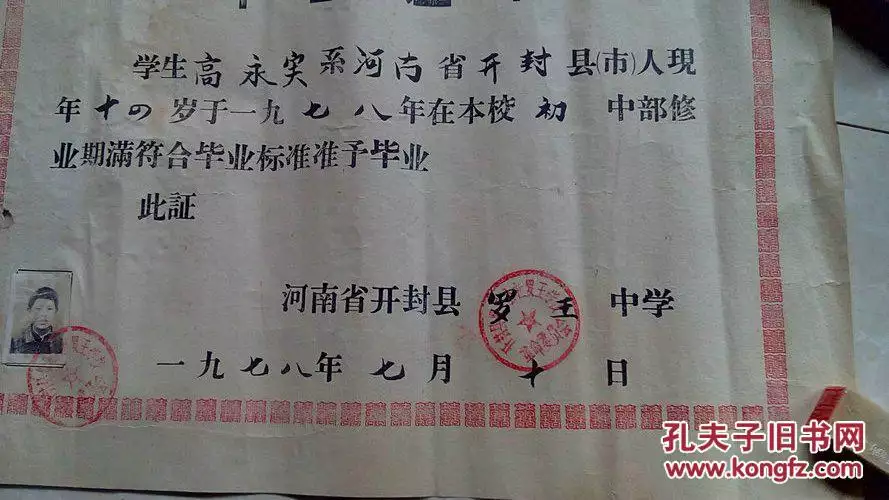 学生高永实系河南省开封县(市)人現
年十四岁于一九七八年在本校初 中部修
业期滿符合毕业标准准予毕业
此証
河南省开封县 罗王 中学
一九七八年七月 十 日
孔夫子旧书网
www.kongfz.com